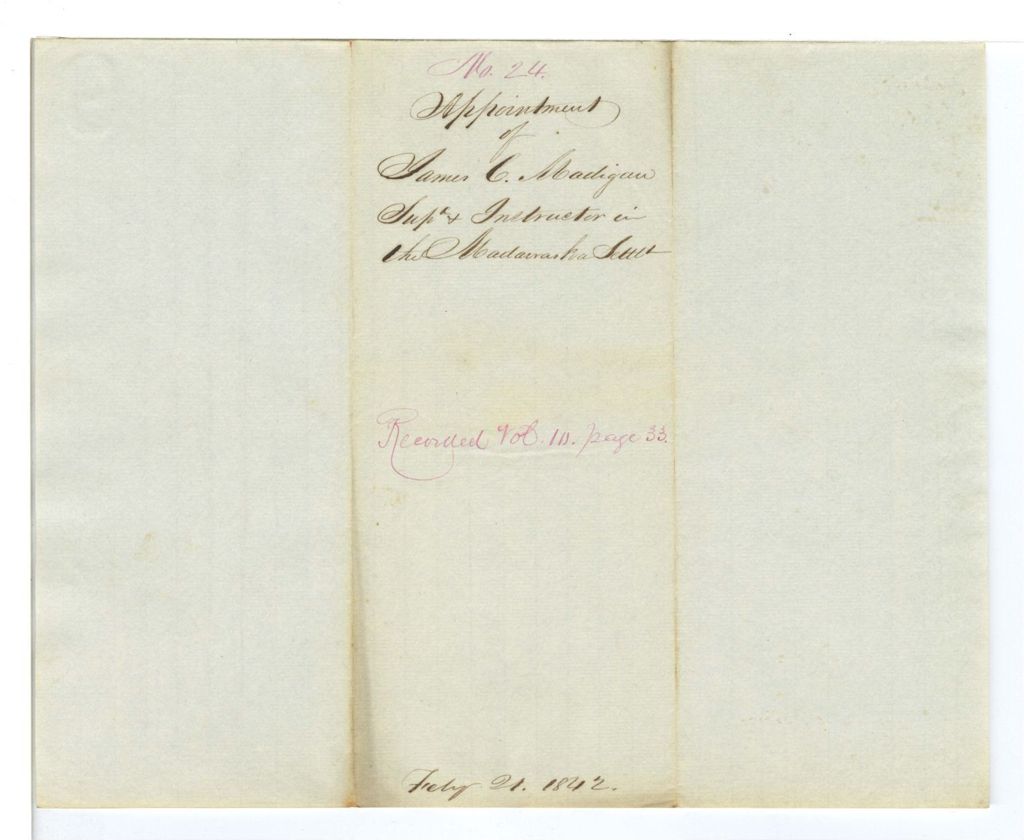 No. 24.
Appointment
of
James C. Madigan
Supt & Instructor in
the Madawaska Settt
Recorded Vol. 10. page 33.
Feby 21. 1842.